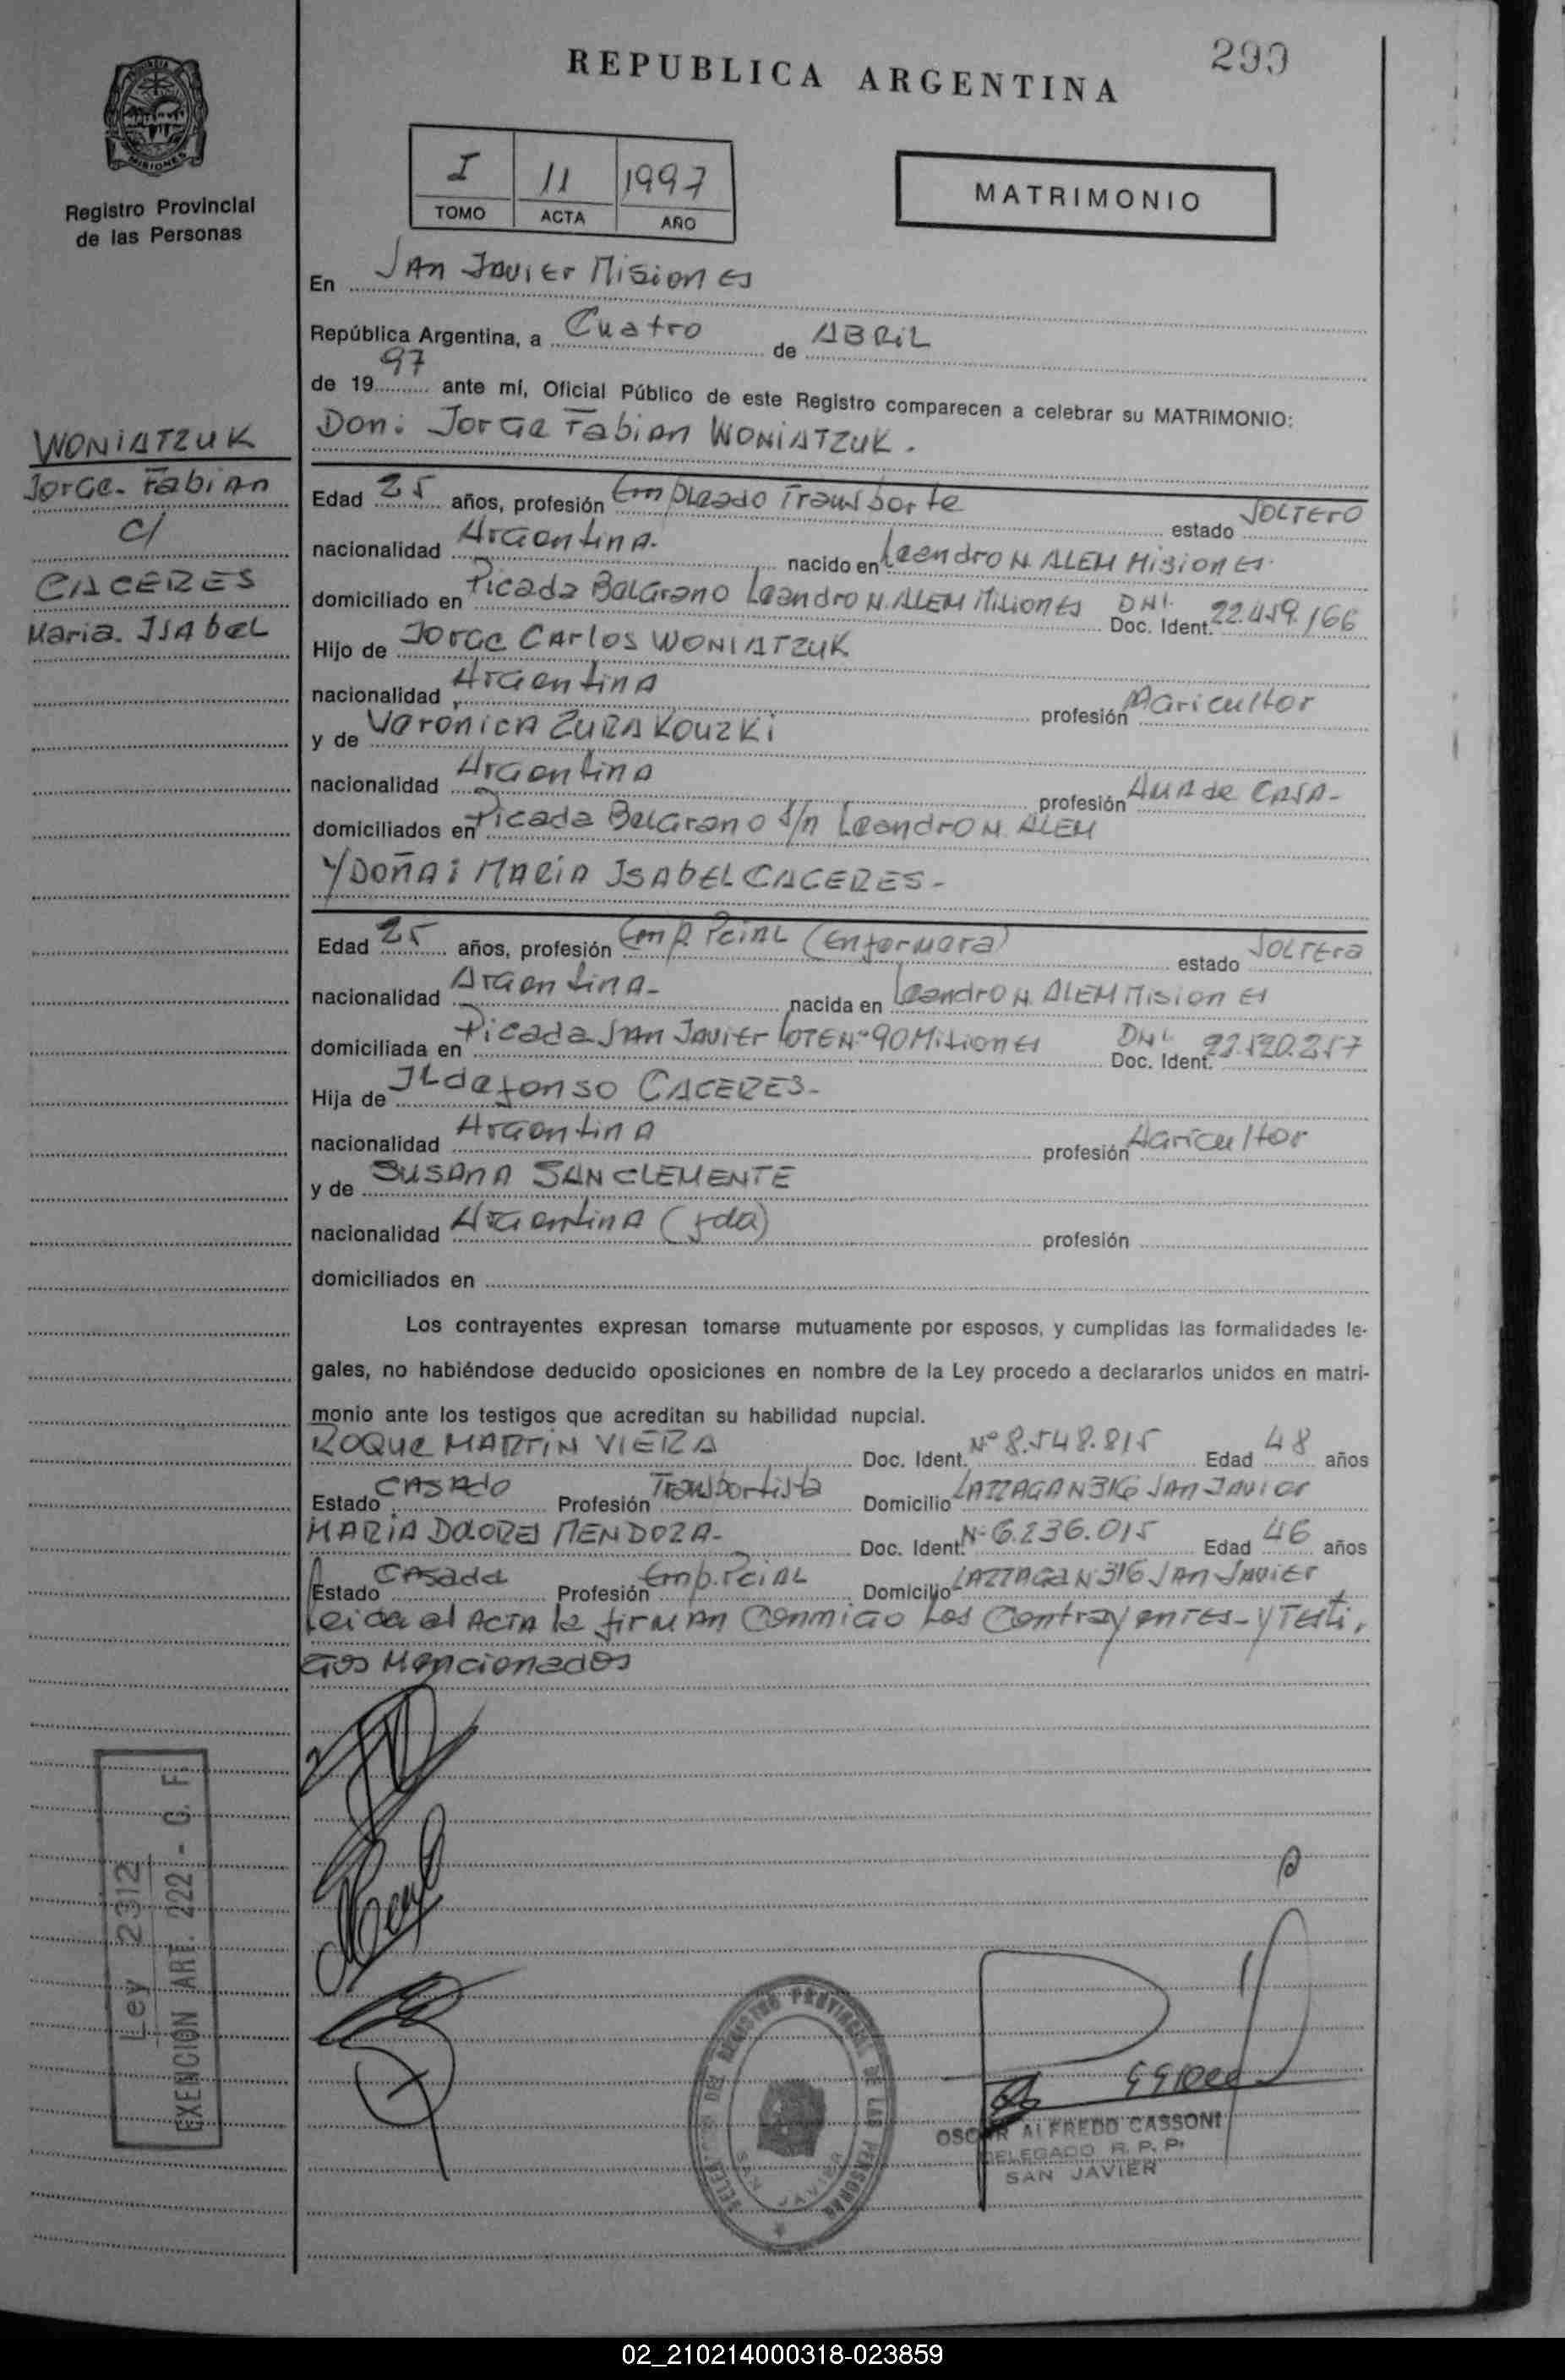 299
REPUBLICA ARGENTINA
PROVINCIA
MISIONES
Registro Provincial
de las Personas
I 11 1997
TOMO ACTA AÑO
MATRIMONIO
En SAn Javier Misiones
República Argentina, a Cuatro de ABRiL
de 1997 ante mí, Oficial Público de este Registro comparecen a celebrar su MATRIMONIO:
WONIATZUK
Jorge. Fabian
c/
CACERES
Maria. ISAbel
Don: Jorge Fabian WONIATZUK.
Edad 25 años, profesión Empleado Transporte estado SOLTERO
nacionalidad Argentina. nacido en Leandro N. ALEM Misiones
domiciliado en Picada Belgrano Leandro N. ALEM Misiones DNI. Doc. Ident. 22.459.166
Hijo de Jorge Carlos WONIATZUK
nacionalidad Argentina profesión Agricultor
y de Veronica ZURAKOUZKi
nacionalidad Argentina profesión AMA de CASA-
domiciliados en Picada Belgrano s/n Leandro N. ALEM
Y DOÑA: MARIA ISABEL CACERES-
Edad 25 años, profesión Emp. Pcial (Enfermera) estado SOLTEra
nacionalidad Argentina- nacida en Leandro N. ALEM Misiones
domiciliada en Picada SAn Javier LOTE Nº 90 Misiones DNI. Doc. Ident.
Hija de ILdefonso CACERES-
nacionalidad Argentina profesión Agricultor
y de SUSANA SANCLEMENTE
nacionalidad Argentina (fda) profesión
domiciliados en
Los contrayentes expresan tomarse mutuamente por esposos, y cumplidas las formalidades le-
gales, no habiéndose deducido oposiciones en nombre de la Ley procedo a declararlos unidos en matri-
monio ante los testigos que acreditan su habilidad nupcial.
ROQUE MARTIN VIERA Doc. Ident. Nº 8.548.815 Edad 48 años
Estado CASADO Profesión Transportista Domicilio 316 SAn Javier
MARIA DOLORES MENDOZA- Doc. Ident. Nº 6.236.015 Edad 46 años
Estado Casada Profesión Emp. Pcial Domicilio 316 SAn Javier
Leida el ACTA la firman Conmigo Los Contrayentes-y Testi.
gos Mencionados
Ley 2312
EXENCION ART. 222 - C. F.
REGISTRO PROVINCIAL DE LAS PERSONAS
SAN JAVIER
OSCAR ALFREDO CASSONI
DELEGADO R. P. P.
SAN JAVIER
02_210214000318-023859